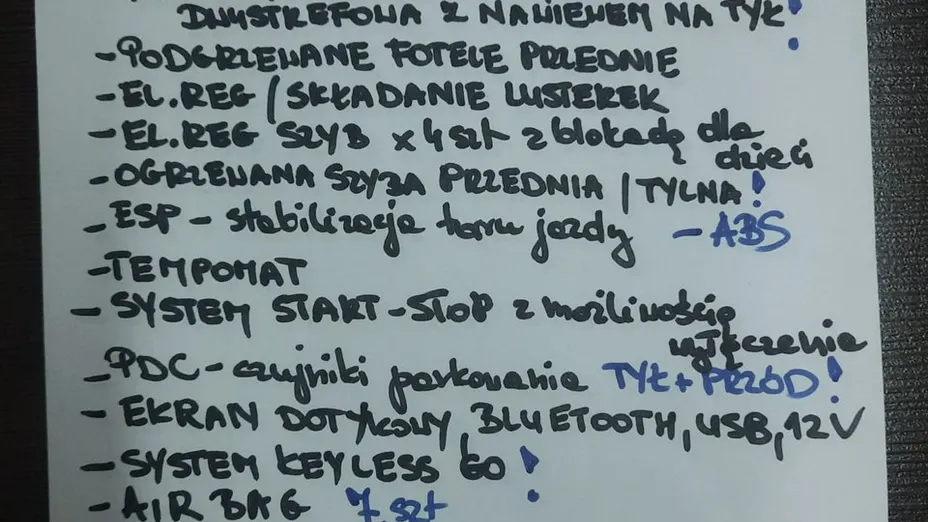 DWUSTREFOWA Z NAWIEWEM NA TYŁ!
- PODGRZEWANE FOTELE PRZEDNIE
- EL.REG / SKŁADANIE LUSTEREK
- EL.REG SZYB x 4 szt z blokadą dla
dzieci
- OGRZEWANA SZYBA PRZEDNIA / TYLNA!
- ESP - stabilizacja toru jazdy - ABS
- TEMPOMAT
- SYSTEM START-STOP z możliwością
wyłączenia
- PDC - czujniki parkowania TYŁ + PRZÓD!
- EKRAN DOTYKOWY, BLUETOOTH, USB, 12V
- SYSTEM KEYLESS GO!
- AIR BAG 7 szt